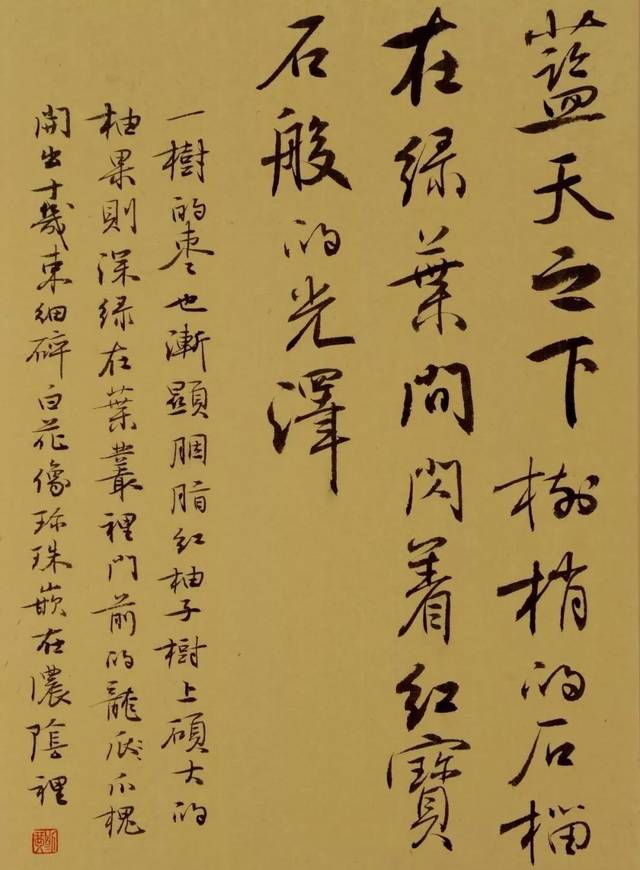 藍天之下樹梢的石榴
在绿葉間閃着红寶
石般的光澤
一樹的枣也漸顯胭脂红柚子樹上碩大的
柚果則深绿在葉叢裡門前的龍爪槐
開出十幾束细碎白花像珍珠嵌在濃陰裡